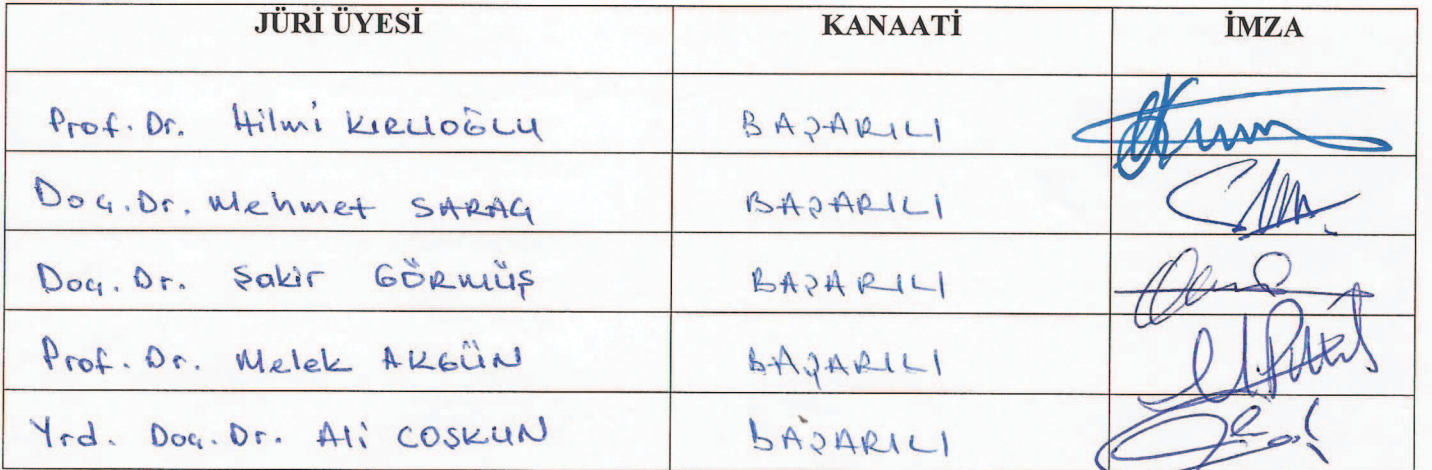 JÜRİ ÜYESİ KANAATİ İMZA
Prof. Dr. Hilmi KIRLIOĞLU BAŞARILI
Doç. Dr. Mehmet SARAÇ BAŞARILI
Doç. Dr. Şakir GÖRMÜŞ BAŞARILI
Prof. Dr. Melek AKGÜN BAŞARILI
Yrd. Doç. Dr. Ali COŞKUN BAŞARILI